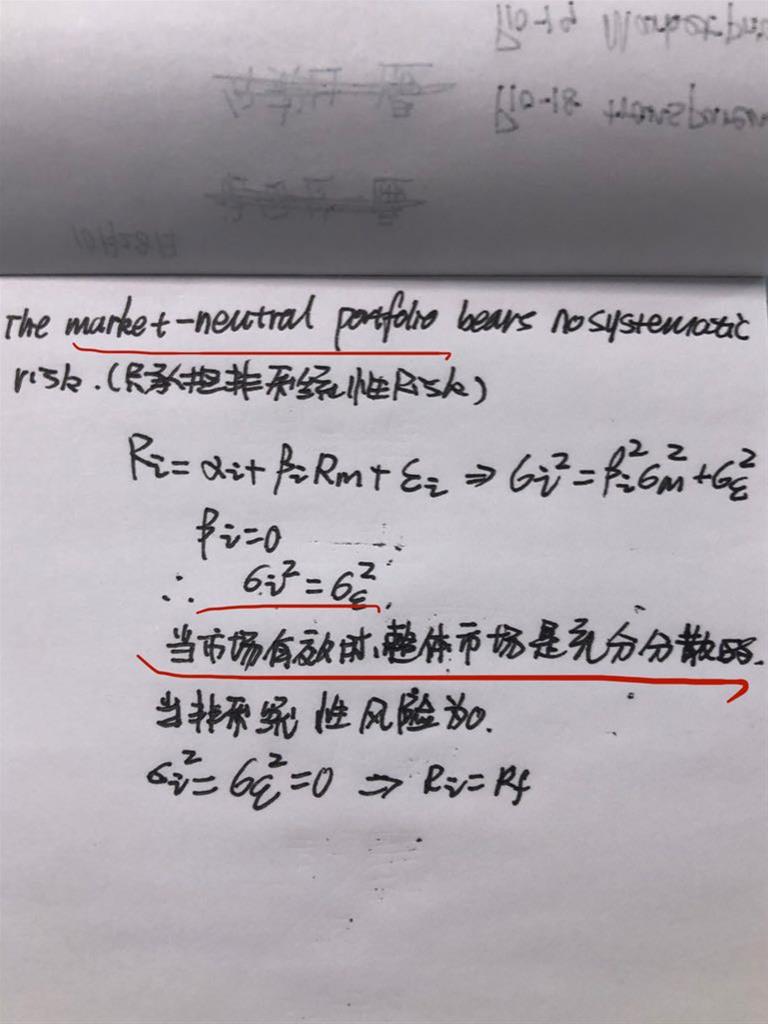 The market-neutral portfolio bears no systematic
risk.(只承担非系统性Risk)
Ri=αi+βiRm+εi ⇒ σi²=βi²σm²+σε²
βi=0
∴ σi²=σε²
当市场有效时、整体市场是充分分散的.
当非系统性风险为0.
σi²=σε²=0 ⇒ Ri=Rf